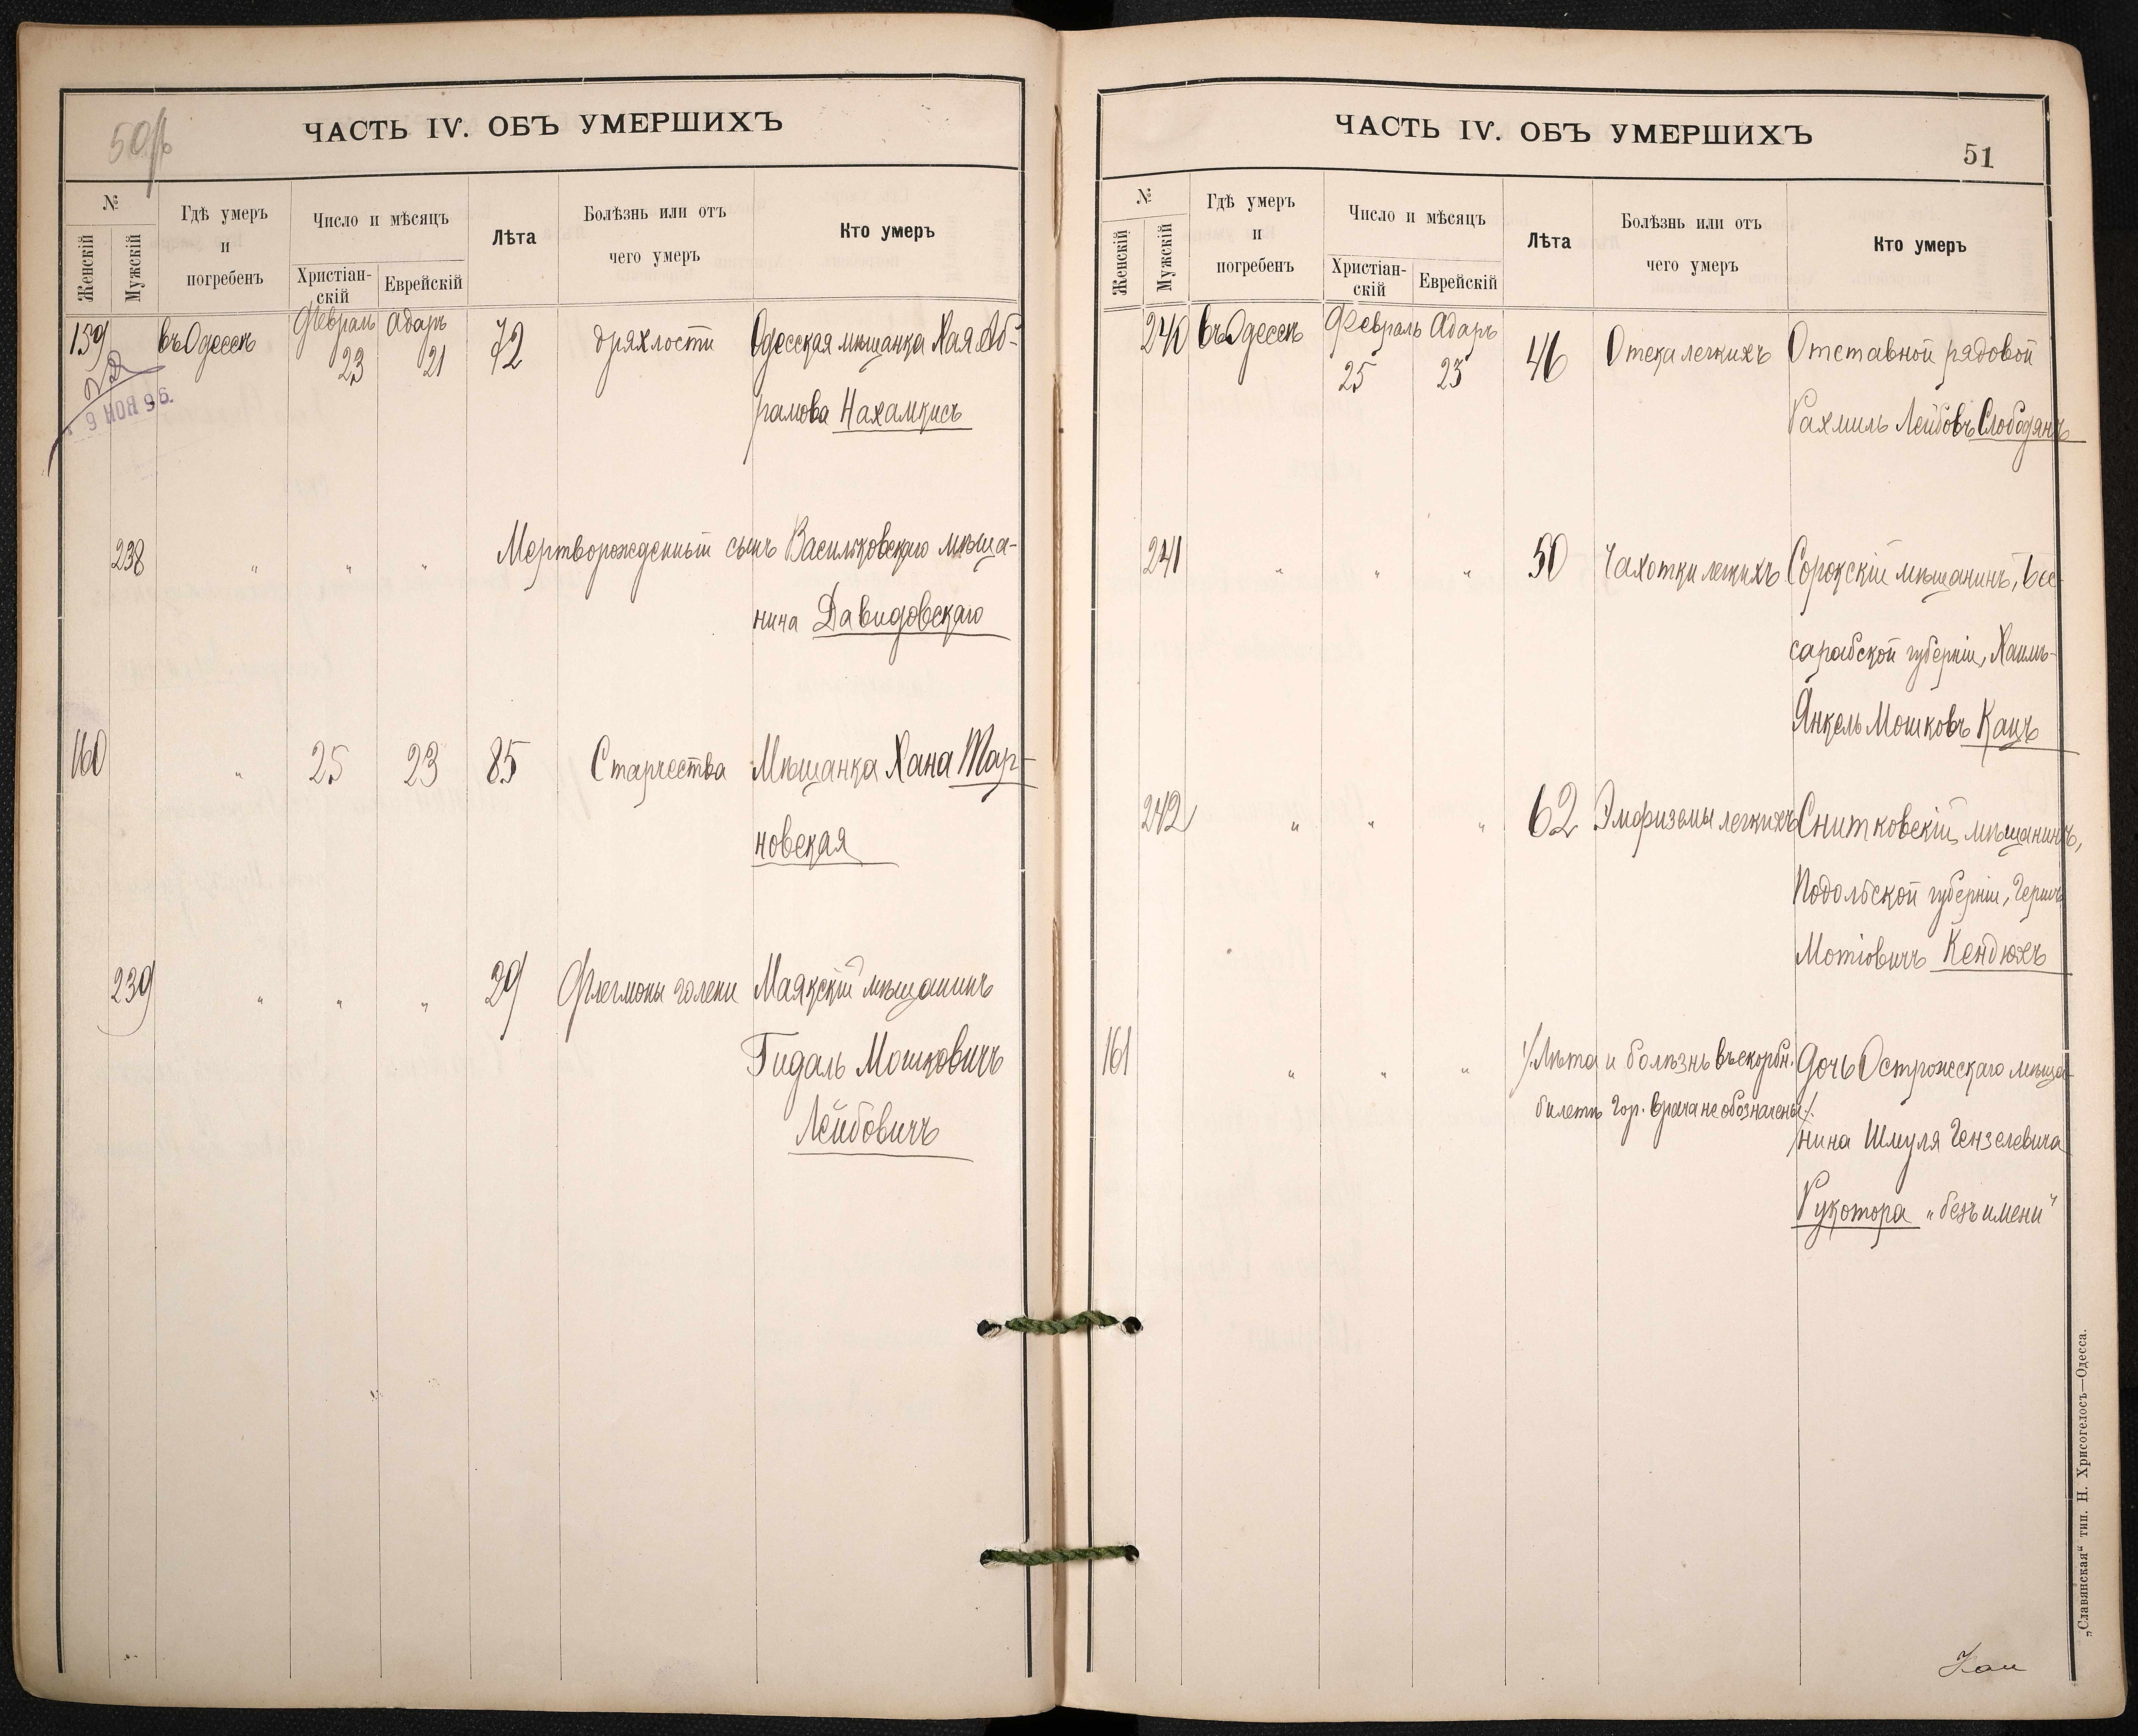 50 об
ЧАСТЬ IV. ОБЪ УМЕРШИХЪ
№
Женскій
Мужскій
Гдѣ умеръ
и
погребенъ
Число и мѣсяцъ
Христіан-
скій
Еврейскій
Лѣта
Болѣзнь или отъ
чего умеръ
Кто умеръ
159 въ Одессѣ Февраль Адаръ 72 дряхлости Одесская мѣщанка Хая Аб-
23 21
рамова Нахамкисъ
9 НОЯ 96.
238 " " " Мертворожденный сынъ Васильковскаго мѣща-
нина Давидовскаго
160 " 25 23 85 Старчества Мѣщанка Хана Тар-
новская
239 " " " 29 Флегмоны голени Маякскій мѣщанинъ
Гидаль Мошковичъ
Лейбовичъ
ЧАСТЬ IV. ОБЪ УМЕРШИХЪ
51
№
Женскій
Мужскій
Гдѣ умеръ
и
погребенъ
Число и мѣсяцъ
Христіан-
скій
Еврейскій
Лѣта
Болѣзнь или отъ
чего умеръ
Кто умеръ
240 въ Одессѣ Февраль Адаръ 46 Отека легкихъ Отставной рядовой
25 23
Рахмиль Лейбовъ Слободянъ
241 " " " 50 Чахотки легкихъ Сорокскій мѣщанинъ, Бес-
сарабской губерніи, Хаимъ-
Янкель Мошковъ Кацъ
242 " " " 62 Эмфиземы легкихъ Снитковскій мѣщанинъ,
Подольской губерніи, Гершъ
Мотіовичъ Кендюхъ
161 " " " /Лѣта и болѣзнь въ скорбн. Дочь Острожскаго мѣща-
билетѣ Гор. врача не обозначены/.
нина Шмуля Гензелевича
Рукотора „безъ имени"
„Славянская" тип. Н. Хрисогелосъ—Одесса.